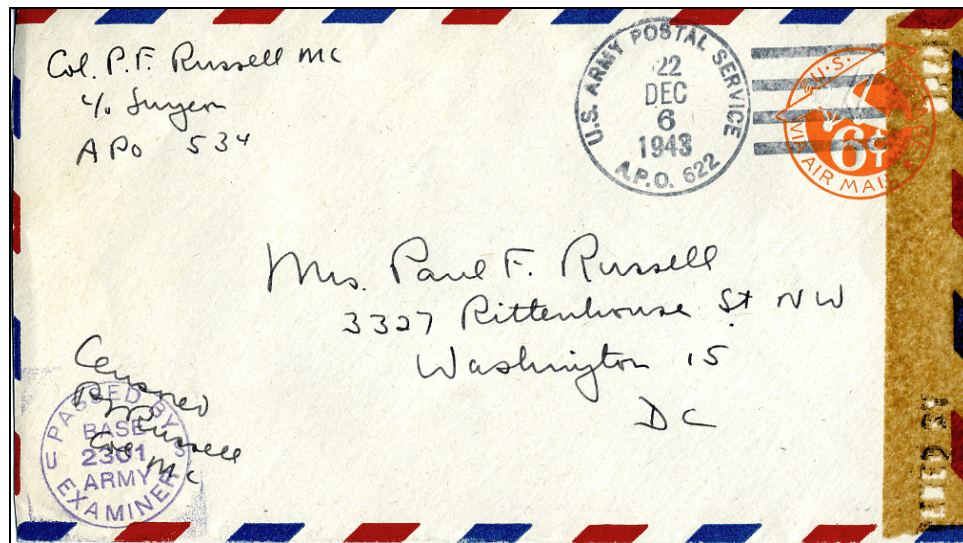 Col. P.F. Russell MC
c/o Surgeon
APO 534
U.S. ARMY POSTAL SERVICE
22
DEC
6
1943
A.P.O. 622
U.S.
6¢
VIA AIR MAIL
Mrs. Paul F. Russell
3327 Rittenhouse St NW
Washington 15
DC
Censored
PFRussell
Col MC
PASSED BY
BASE
2301
ARMY
EXAMINER
ENED BY